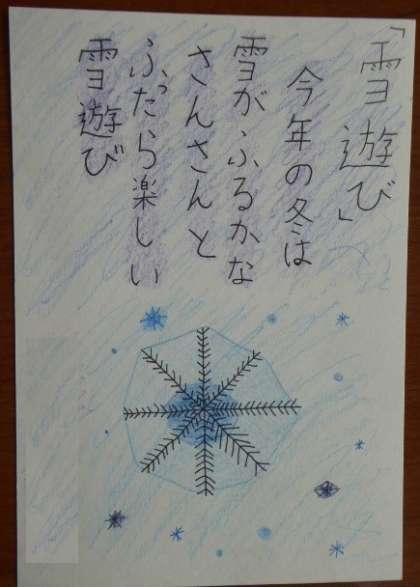 「雪遊び」
今年の冬は
雪がふるかな
さんさんと
ふったら楽しい
雪遊び